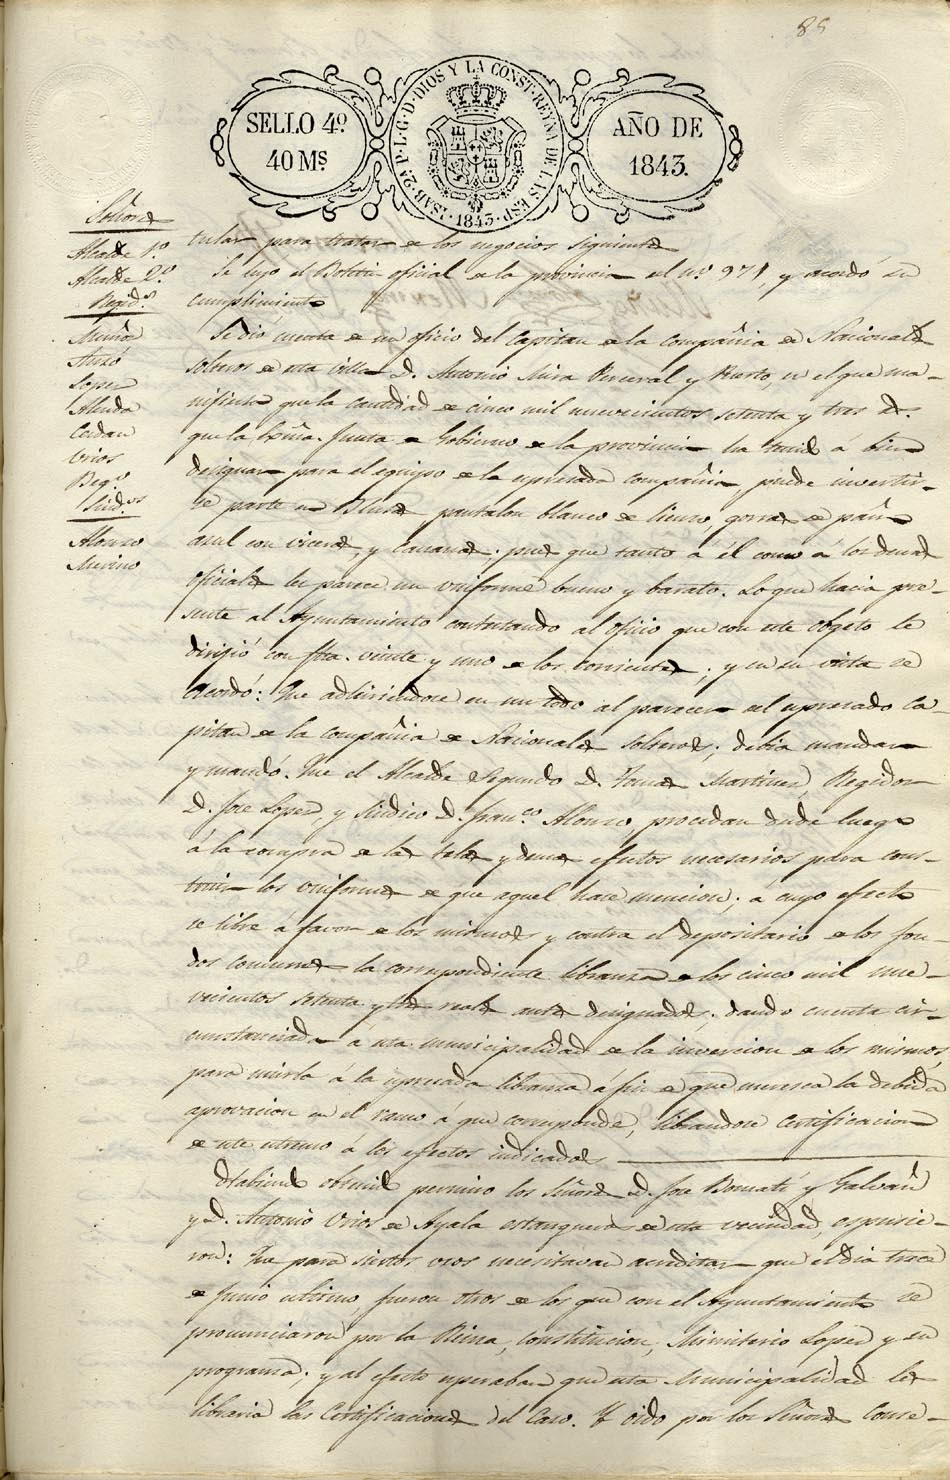 85
SELLO 4º
40 Ms.
ISAB. 2ª P. L. G. D. DIOS Y LA CONST. REYNA DE LAS ESP.
1843
AÑO DE
1843.
Señores
Alcalde 1.º
Alcalde 2.º
Regid.s
Muñoz
Lopez
Cerdan
Urios
Sind.os
Alonso
Merino
tular para tratar de los negocios siguientes
Se leyo el Boletin oficial de la provincia del n.º 971, y acordó su
cumplimiento
Se dió cuenta de un oficio del Capitan de la compañia de Nacionales
solteros de esta Villa D. Antonio Mira Perceval y Puerto, en el que ma-
nifiesta que la cantidad de cinco mil nuevecientos setenta y tres rs.
que la Exma. Junta de Gobierno de la provincia ha tenido á bien
designar para el equipo de la espresada compañia, puede invertir-
se parte en Blusas pantalon blanco de lienzo, gorras de paño
azul con viceras, y cananas; pues que tanto á él como á los demas
oficiales les parece un uniforme bueno y barato. Lo que hacia pre-
sente al Ayuntamiento contestando al oficio que con este obgeto le
dirijió con fha. veinte y uno de los corrientes; y en su vista se
Acordó: Que adhiriendose en un todo al parecer del espresado Ca-
pitan de la compañia de Nacionales solteros, debia mandar
y mandó. Que el Alcalde Segundo D. Tomas Martinez, Regidor
D. José Lopez, y Sindico D. Fran.co Alonso, procedan desde luego
á la compra de las telas y demas efectos necesarios para cons-
truir los uniformes de que aquel hace mencion; á cuyo efecto
se libre á favor de los mismos y contra el depositario de los fon-
dos comunes la correspondiente libranza de los cinco mil nue-
vecientos setenta y tres reales antes designados; dando cuenta cir-
cunstanciada á esta municipalidad de la invercion de los mismos,
para unirla á la espresada libranza á fin de que meresca la debida
aprovacion en el ramo á que corresponde, librandose Certificacion
de este estremo á los efectos indicados
Habiendo obtenido permiso los Señores D. José Bonmatí y Galvañ
y D. Antonio Urios de Ayala estanqueros de esta vecindad, espusie-
ron: Que para ciertos usos necesitavan acreditar que el dia trece
de Junio ultimo, fueron otros de los que con el Ayuntamiento se
pronunciaron por la Reina, Constitucion, Ministerio Lopez y su
programa; y al efecto esperaban que esta Municipalidad les
libraria las Certificaciones del Caso. Y oido por los Señores Conse-